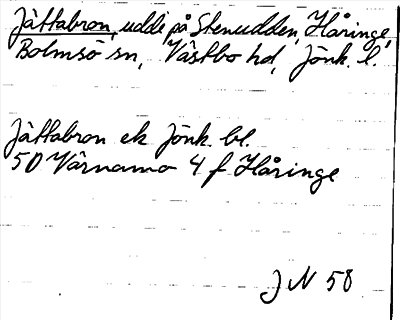 Jättabron, udde på Stenudden, Håringe,
Bolmsö sn, Västbo hd, Jönk. l.
Jättabron ek Jönk. bl.
50 Värnamo 4 f Håringe
J N 58